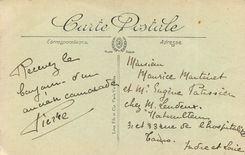 Carte Postale
Correspondance
Adresse
Recevez le
bonjour d'un
ancien camarade
Pierre
Monsieur
Maurice Martinet
et Mr Eugène Patissier
chez M.
31 et 33 rue de l'hospitalité
Tours
Indre et Loire